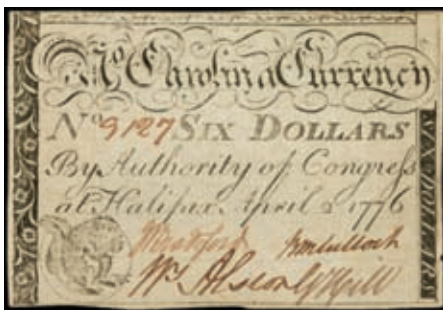 No Carolina Currency
No 9127 SIX DOLLARS
By Authority of Congress
at Halifax April 2 1776
Wm Alston
SIX DOLLARS